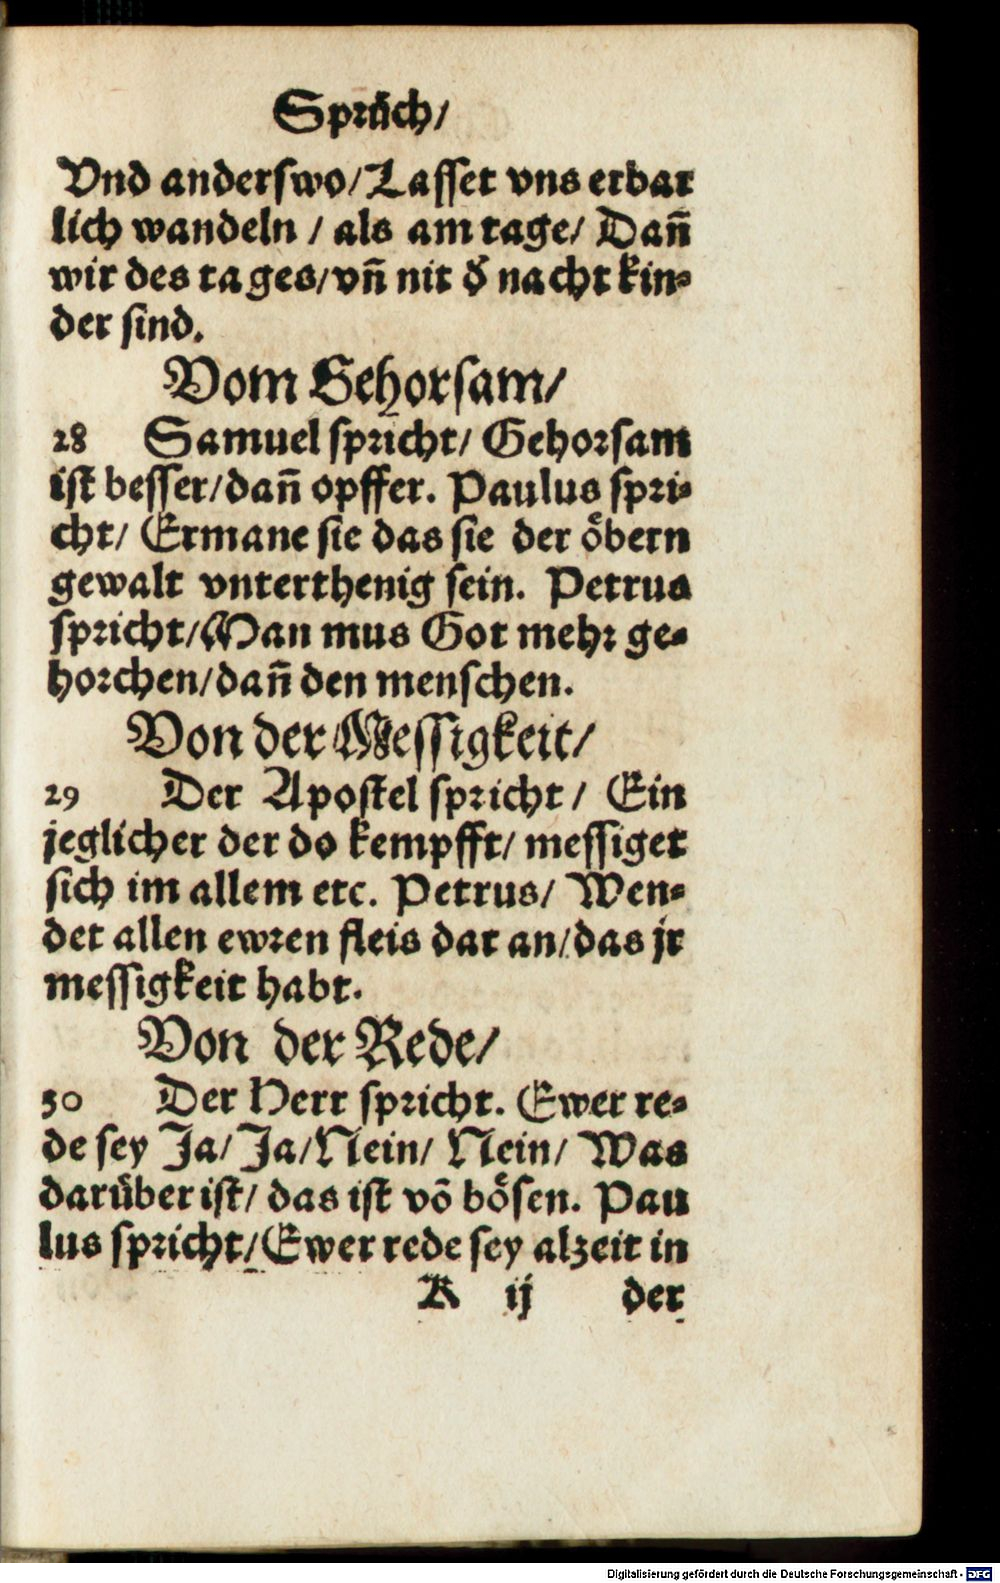 Sprůch/
Vnd anderswo/Lasset vns erbar
lich wandeln / als am tage/ Dañ
wir des tages/vñ nit d̛ nacht kin-
der sind.
Vom Gehorsam/
28 Samuel spricht/ Gehorsam
ist besser/dañ opffer. Paulus spri-
cht/ Ermane sie das sie der oͤbern
gewalt vnterthenig sein. Petrus
spricht/Man mus Got mehr ge-
horchen/dañ den menschen.
Von der Messigkeit/
29 Der Apostel spricht / Ein
jeglicher der do kempfft/ messiget
sich im allem etc. Petrus/ Wen-
det allen ewren fleis dar an/das jr
messigkeit habt.
Von der Rede/
30 Der Herr spricht. Ewer re-
de sey Ja/ Ja/Nein/ Nein/ Was
daruͤber ist/ das ist võ boͤsen. Pau
lus spricht/Ewer rede sey alzeit in
K ij der
Digitalisierung gefördert durch die Deutsche Forschungsgemeinschaft - DFG